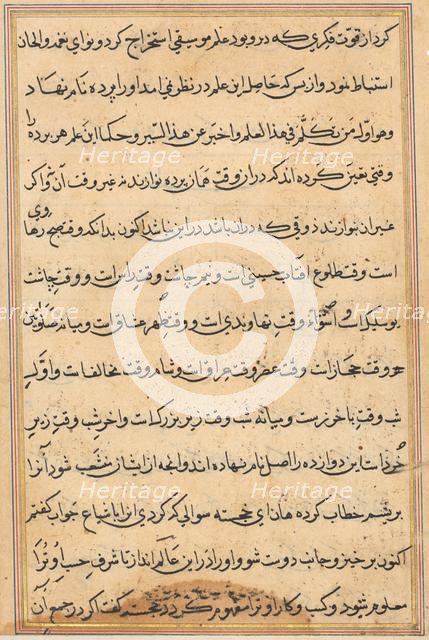 کرد از قوت فکری که در و بود علم موسیقی استخراج کرد و نوای نغمه و الحان
استنباط نمود و از بس که حاصل این علم در نظر وی نمی امد او را پرده نام نهاد
وهو اول من تکلم فی هذا العلم و اخبر عن هذا السیر و حکما این علم هر پرده را
وقتی تعین کرده اند که در ان وقت هماز پرده نوازند نه غیر وقت آن و اگر
غیر ان بنوازند ذوقی که در ان باشد در این نباشد اکنون بدانکه وقت صبح رهاوی
است وقت طلوع افتاب حسینی است و نیم چاشت وقت راست است و وقت چاشت
بوسلیک است و استواء وقت نهاوندی است و وقت ظهر عشاق است و میانه صلوتین
وقت حجاز است وقت عصر وقت عراق است و شام وقت مخالف است و اول
شب وقت باخرز است و میانه شب وقت زیر بزرک است و اخر شب وقت زیر
خورد است این دوازده را اصل نام نهاده اند و انچه از ایشان منشعب شود آنرا
بریشم خطاب کرده هان ای خجسته سوالی که کردی انرا باشباع جواب کفتم
اکنون برخیز و جانب دوست شو و او را در این عالم انداز تا شرف حسب او ترا
معلوم شود و کسب و کار او ترا مفهوم کردد خجسته کفت اکر در جمع آن
Heritage
Heritage
Heritage
Heritage
Heritage
Heritage
©